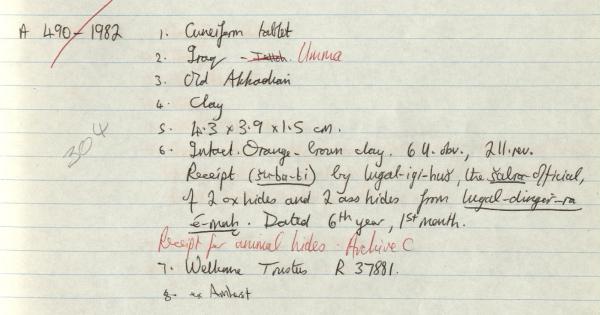 A 490-1982 1. Cuneiform tablet
2. Iraq - Umma
3. Old Akkadian
4. Clay
5. 4.3 x 3.9 x 1.5 cm.
304
6. Intact. Orange-brown clay. 6 ll. obv., 2 ll. rev.
Receipt (šu-ba-ti) by lugal-igi-huš, the official,
of 2 ox hides and 2 ass hides from lugal-dingir-ra
É-mah. Dated 6th year, 1st month.
Receipt for animal hides - Archive C
7. Wellcome Trustees R 37881.
8. ex Amherst